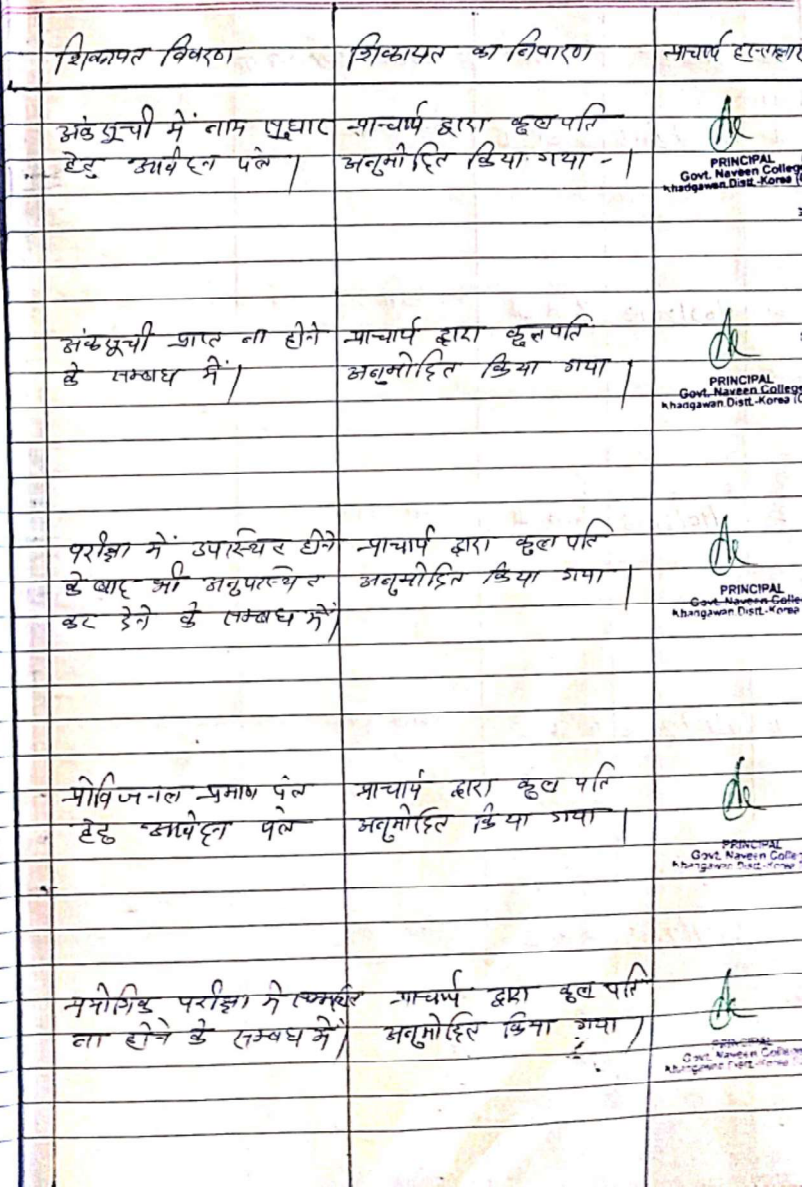 शिकायत विवरण
शिकायत का निवारण
प्राचार्य हस्ताक्षर
अंकसूची में नाम सुधार
हेतु आवेदन पत्र |
प्राचार्य द्वारा कुलपति
अनुमोदित किया गया - |
PRINCIPAL
Govt. Naveen College
Khadgawan Distt.-Korea (
अंकसूची प्राप्त ना होने
के सम्बंध में |
प्राचार्य द्वारा कुलपति
अनुमोदित किया गया |
PRINCIPAL
Govt. Naveen College
Khangawan Distt.-Korea (
परीक्षा में उपस्थित होने
के बाद भी अनुपस्थित
कर देने के सम्बंध में |
प्राचार्य द्वारा कुलपति
अनुमोदित किया गया |
PRINCIPAL
Govt. Naveen Colle
Khangawan Distt.-Korea
प्रोविजनल प्रमाण पत्र
हेतु आवेदन पत्र
प्राचार्य द्वारा कुलपति
अनुमोदित किया गया |
PRINCIPAL
Govt. Naveen Colle
Khangawan Distt.-Korea
परीक्षा में
ना होने के सम्बंध में |
प्राचार्य द्वारा कुलपति
अनुमोदित किया गया |
PRINCIPAL
Govt. Naveen College